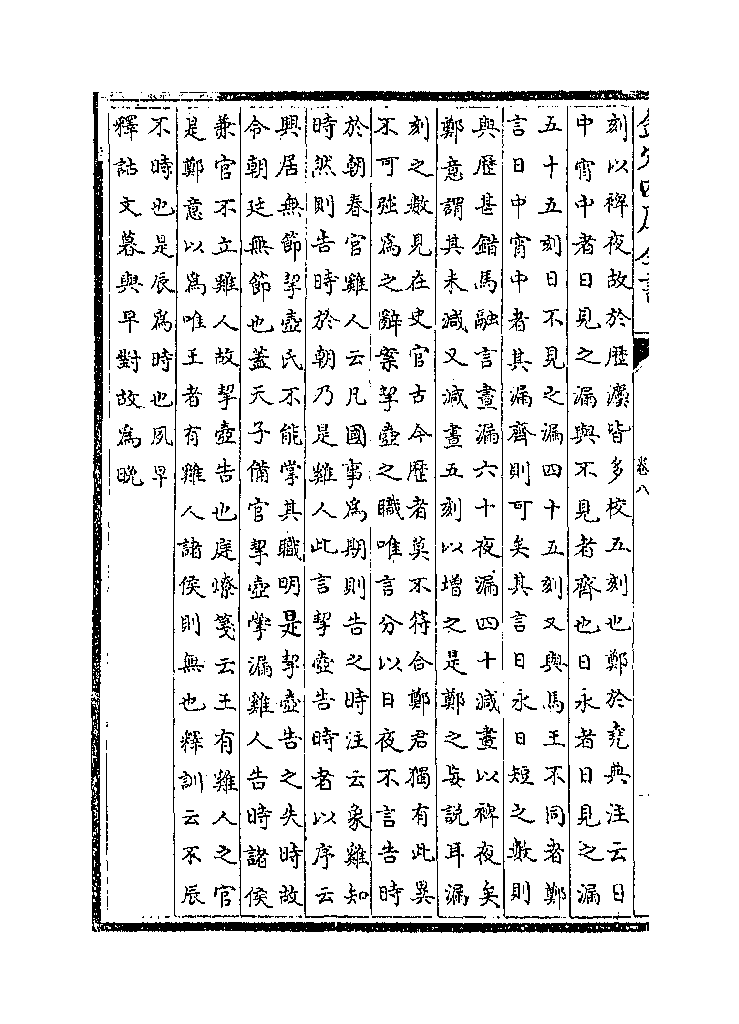 欽定四庫全書 卷八
刻以裨夜故於歷灋皆多校五刻也鄭於堯典注云日
中宵中者日見之漏與不見者齊也日永者日見之漏
五十五刻日不見之漏四十五刻又與馬王不同者鄭
言日中宵中者其漏齊則可矣其言日永日短之數則
與歷甚錯馬融言晝漏六十夜漏四十減晝以裨夜矣
鄭意謂其未減又減晝五刻以增之是鄭之妄說耳漏
刻之數見在史官古今歷者莫不符合鄭君獨有此異
不可强為之辭案挈壺之職唯言分以日夜不言告時
於朝春官雞人云凡國事為期則告之時注云象雞知
時然則告時於朝乃是雞人此言挈壺告時者以序云
興居無節挈壺氏不能掌其職明是挈壺告之失時故
令朝廷無節也蓋天子備官挈壺掌漏雞人告時諸侯
兼官不立雞人故挈壺告也庭燎箋云王有雞人之官
是鄭意以為唯王者有雞人諸侯則無也釋訓云不辰
不時也是辰為時也夙早
釋詁文暮與早對故為晚